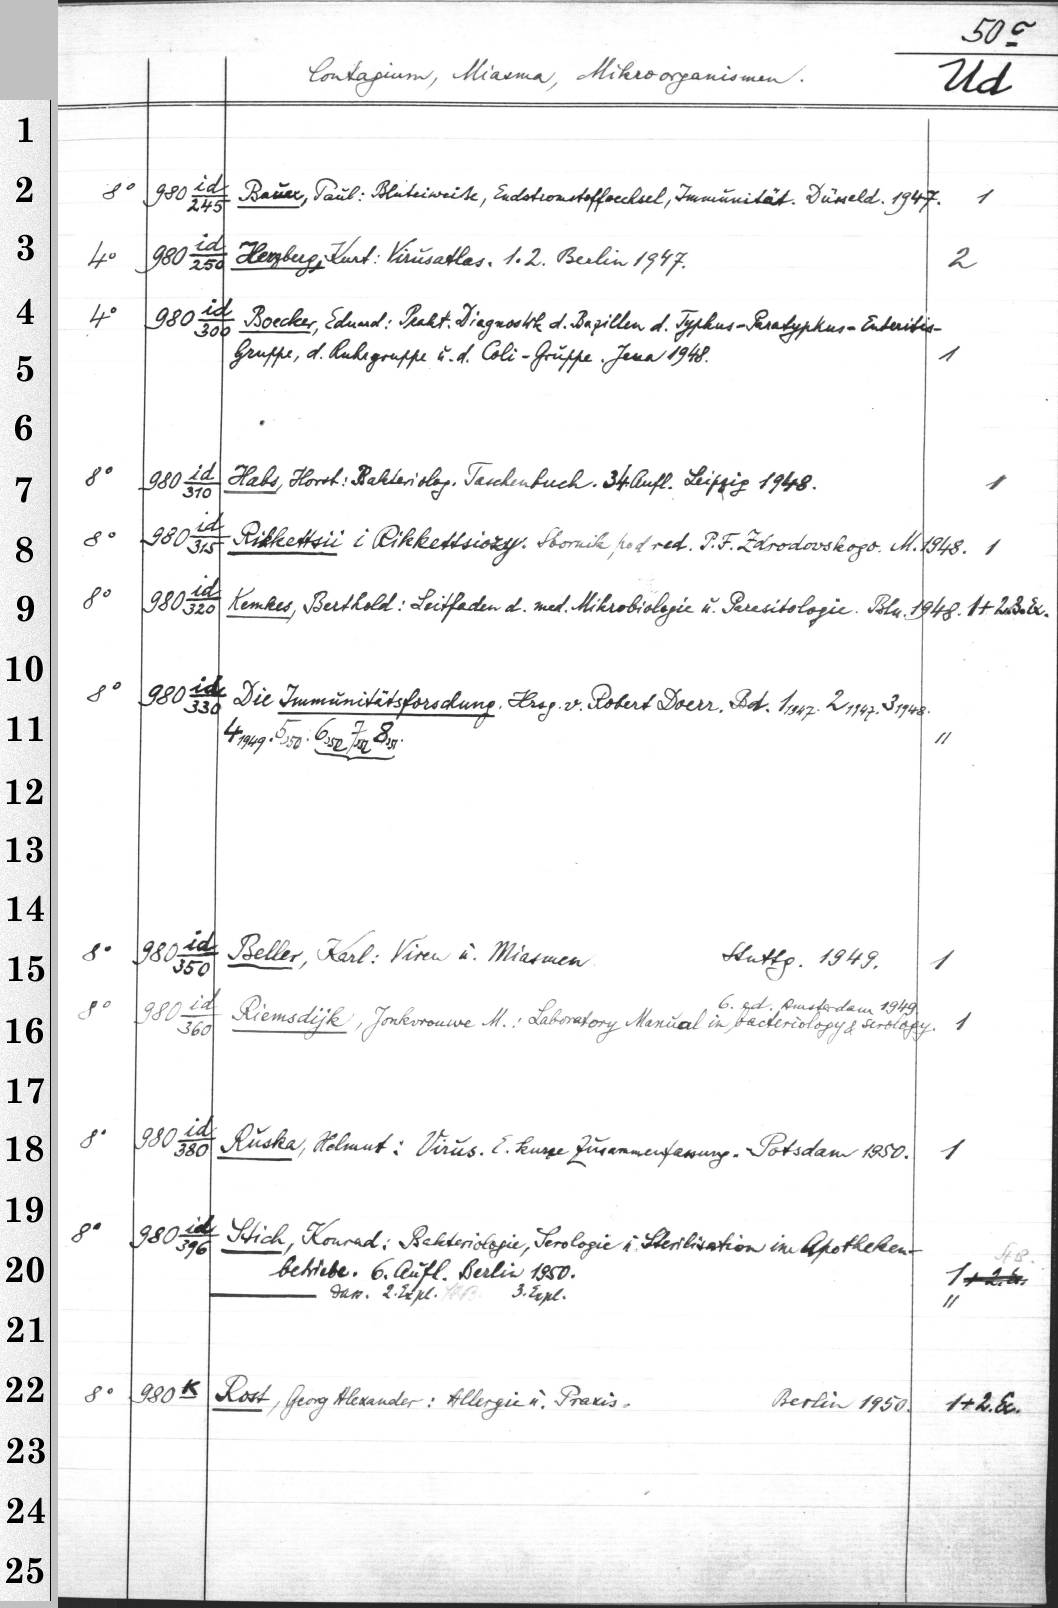 50 c
Ud
Contagium, Miasma, Mikroorganismen.
1
2 8° 980 id/245 Bauer, Paul: Bluteiweiße, Endstromstoffwechsel, Immunität. Düsseld. 1947. 1
3 4° 980 id/250 Herzberg, Kurt: Virusatlas. 1.2. Berlin 1947. 2
4 4° 980 id/300 Boecker, Eduard: Prakt. Diagnostik d. Bazillen d. Typhus-Paratyphus-Enteritis-
5 Gruppe, d. Ruhrgruppe u. d. Coli-Gruppe. Jena 1948. 1
6
7 8° 980 id/310 Habs, Horst: Bakteriolog. Taschenbuch. 34. Aufl. Leipzig 1948. 1
8 8° 980 id/315 Rikkettsii i Rikkettsiozy. Sbornik pod red. P. F. Zdrodovskogo. M. 1948. 1
9 8° 980 id/320 Kemkes, Berthold: Leitfaden d. med. Mikrobiologie u. Parasitologie. Bln. 1948. 1+2.3.Ex.
10
8° 980 id/330 Die Immunitätsforschung. Hrsg. v. Robert Doerr. Bd. 1 1947. 2 1947. 3 1948.
11 4 1949. 5 950. 6 950 7 8 951. "
12
13
14
15 8° 980 id/350 Beller, Karl: Viren u. Miasmen Stuttg. 1949. 1
6. ed. Amsterdam 1949
16 8° 980 id/360 Riemsdijk, Jonkvrouwe M.: Laboratory Manual in bacteriology & serology. 1
17
18 8° 980 id/380 Ruska, Helmut: Virus. E. kurze Zusammenfassung. - Potsdam 1950. 1
19
8° 980 id/396 Stich, Konrad: Bakteriologie, Serologie u. Sterilisation im Apotheken-
20 betriebe. 6. Aufl. Berlin 1950. 1 + 2. Ex.
Dass. 2. Expl. 3. Expl. "
21
22 8° 980 K Rost, Georg Alexander: Allergie u. Praxis. Berlin 1950. 1+2. Ex.
23
24
25